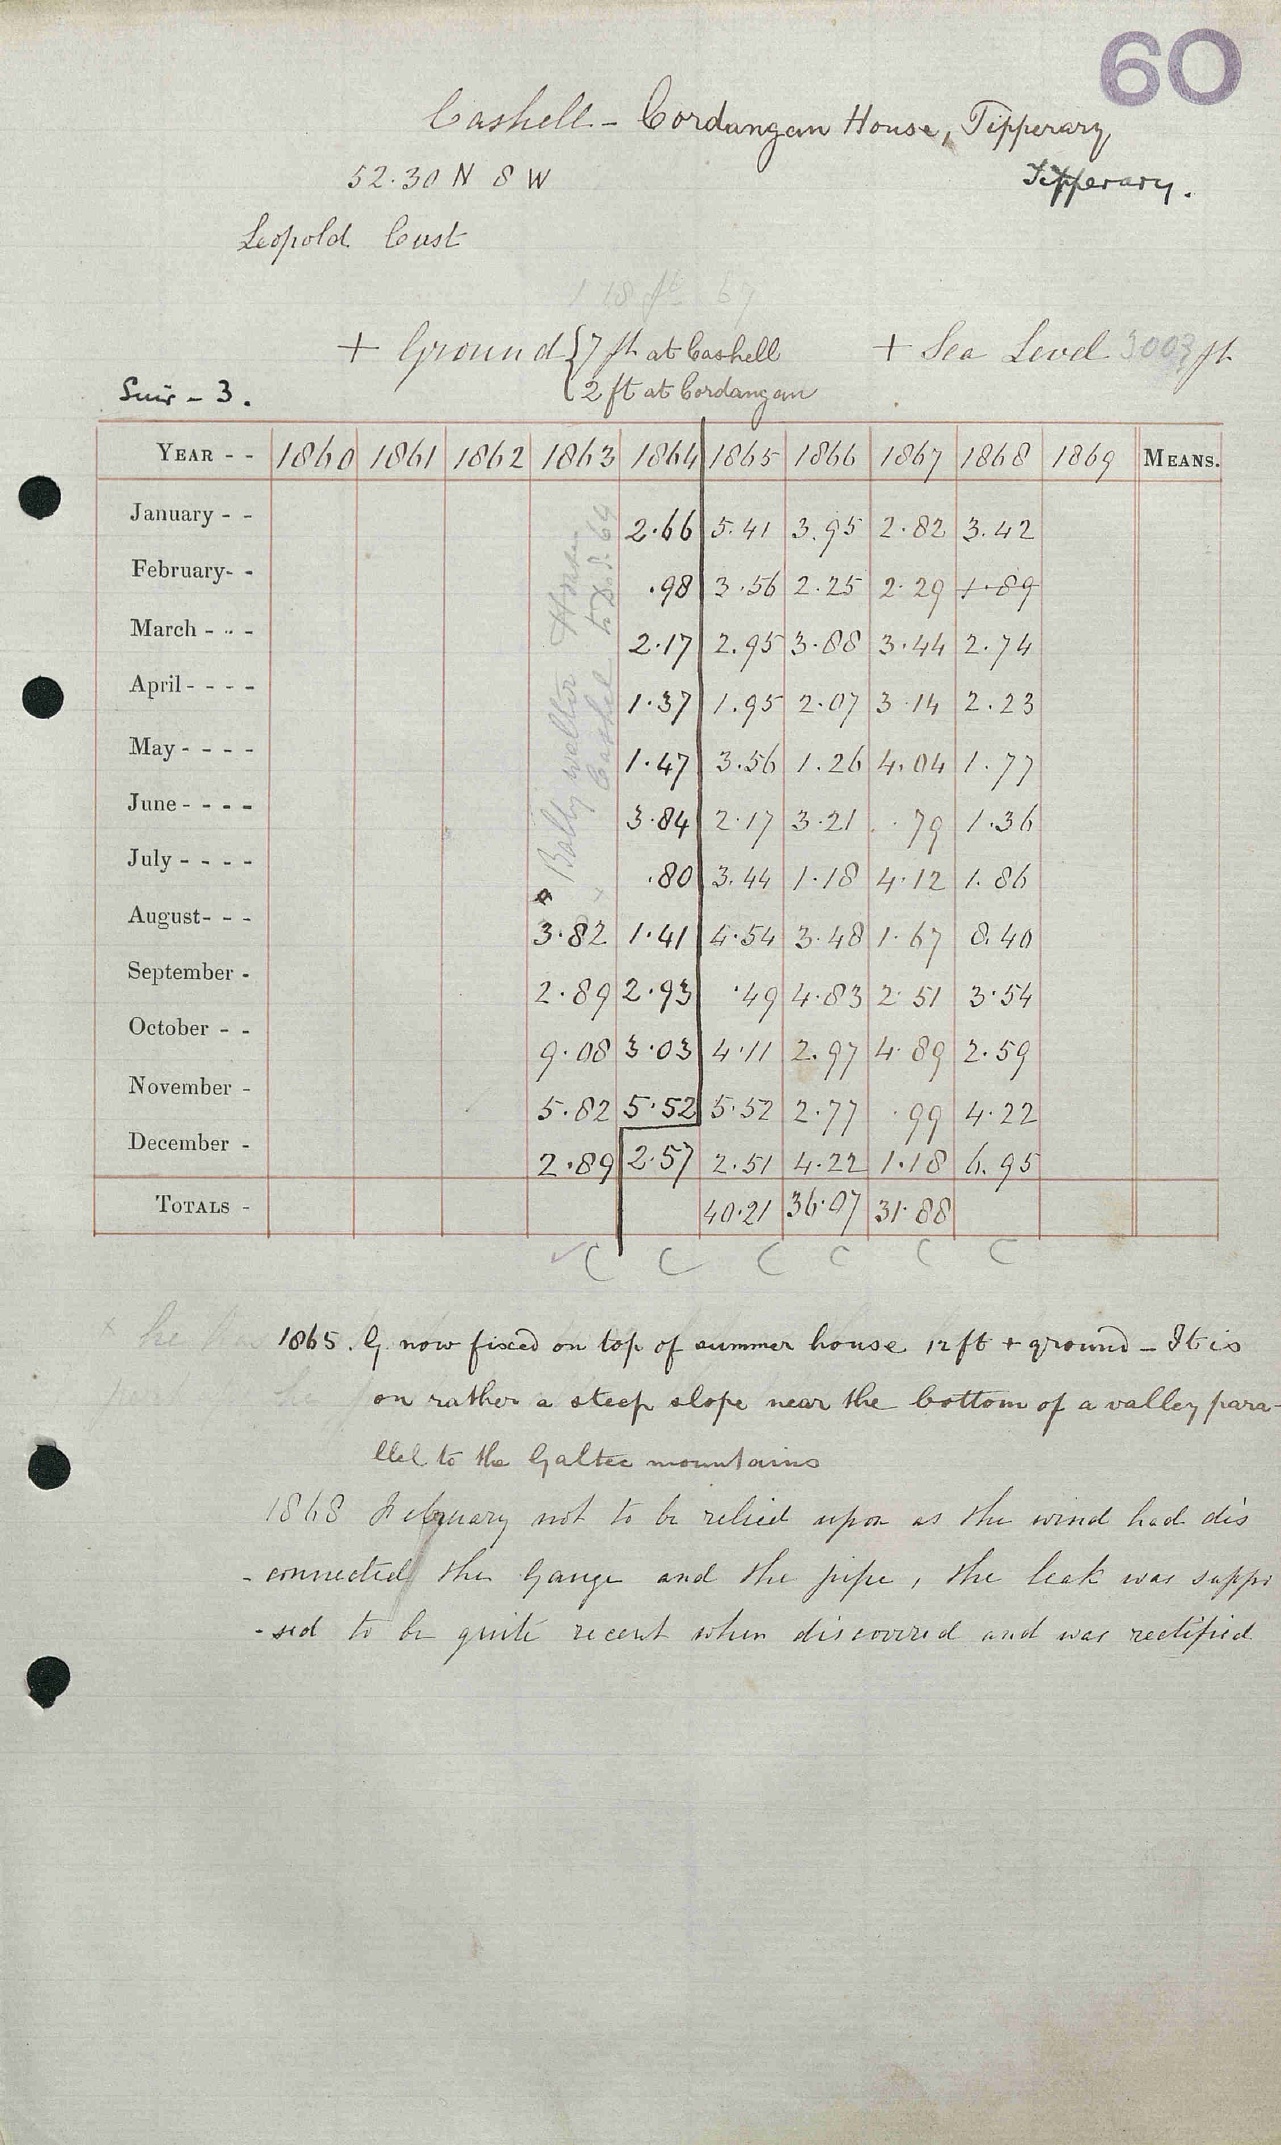 60
Cashell - Cordangan House, Tipperary
52.30 N 8 W
Tipperary.
Leopold Cust
1 18 ft 67
+ Ground {7 ft at Cashell + Sea Level 300? ft
2 ft at Cordangan
Suir - 3.
YEAR - - 1860 1861 1862 1863 1864 1865 1866 1867 1868 1869 MEANS.
January - - 2.66 5.41 3.95 2.82 3.42
February- - .98 3.56 2.25 2.29 1.89
March - - - 2.17 2.95 3.88 3.44 2.74
April - - - - 1.37 1.95 2.07 3.14 2.23
May - - - - 1.47 3.56 1.26 4.04 1.77
June - - - - 3.84 2.17 3.21 .79 1.36
July - - - - .80 3.44 1.18 4.12 1.86
August- - - 3.82 1.41 4.54 3.48 1.67 8.40
September - 2.89 2.93 .49 4.83 2.51 3.54
October - - 9.08 3.03 4.11 2.97 4.89 2.59
November - 5.82 5.52 5.52 2.77 .99 4.22
December - 2.89 2.57 2.51 4.22 1.18 6.95
TOTALS - 40.21 36.07 31.88
C C C C C C
Ballywalter House
Cashel to D.I. 64
1865. G. now fixed on top of summer house 12 ft + ground - It is
on rather a steep slope near the bottom of a valley para-
llel to the Galtee mountains
1868 February not to be relied upon as the wind had dis
- connected the Gauge and the pipe, the leak was suppo
- sed to be quite recent when discovered and was rectified